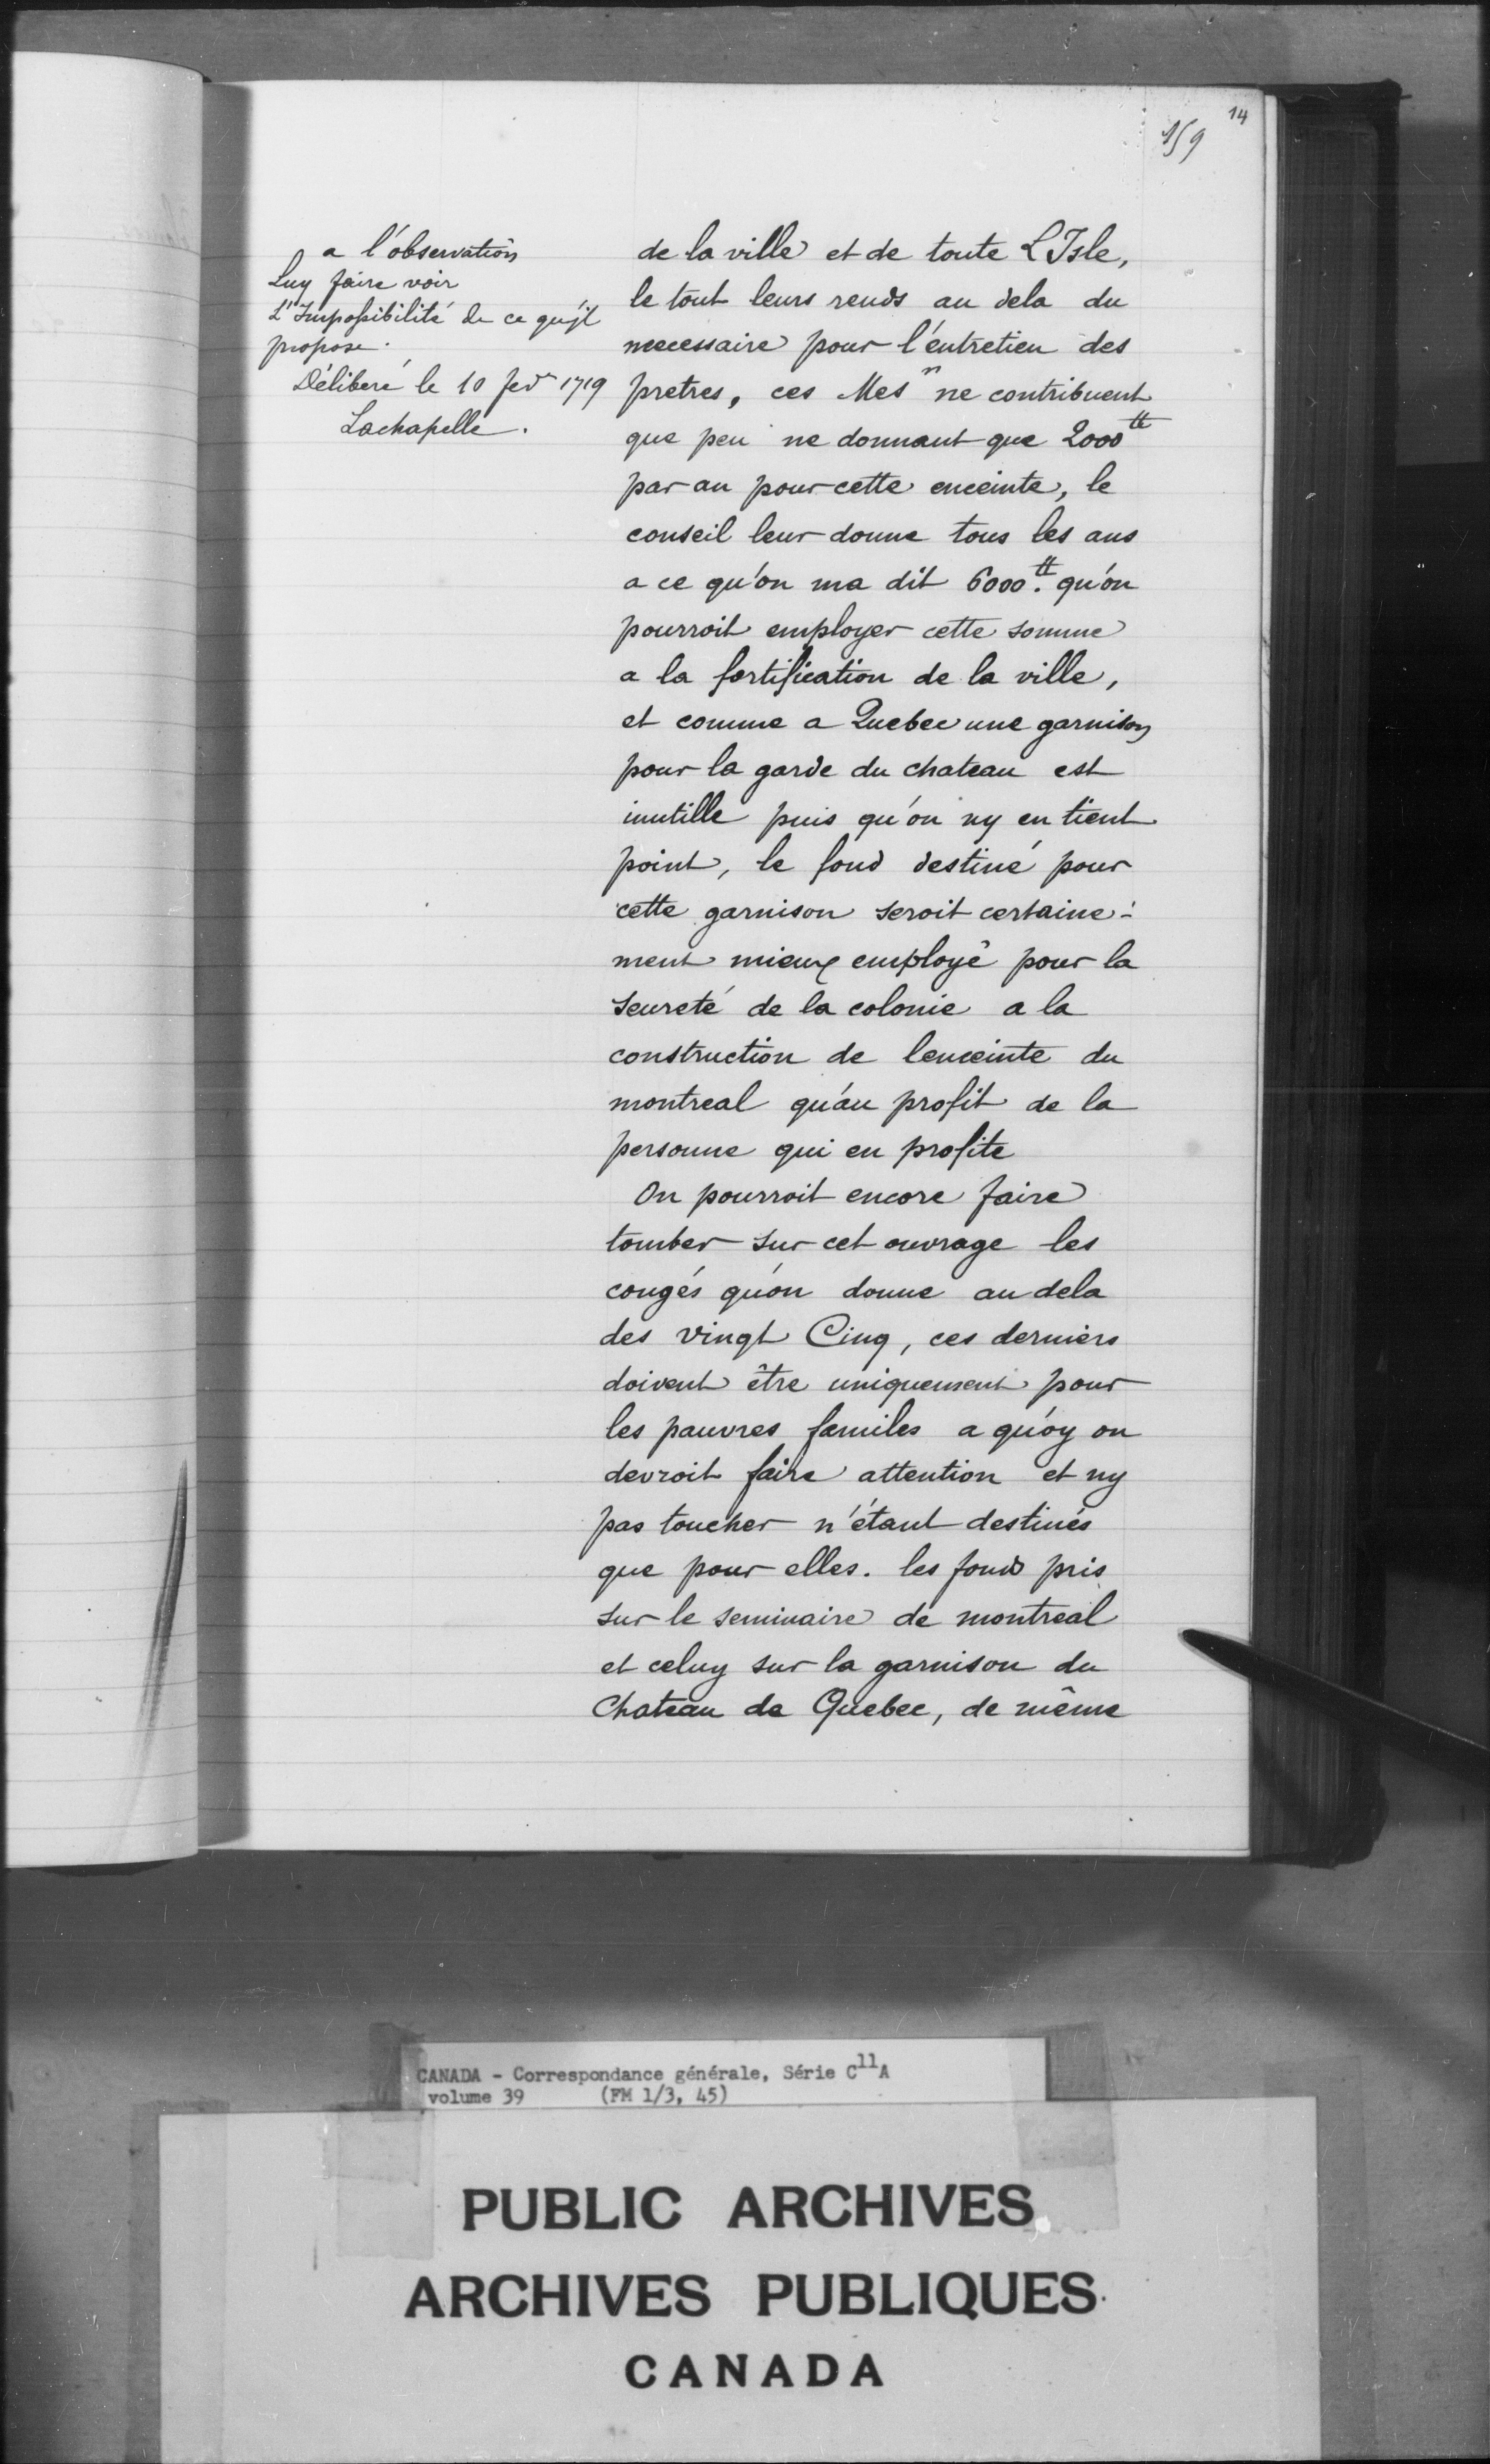 14
159
a l'observation
Luy faire voir
L'Impossibilité de ce qu'jl
propose.
Délibéré le 10 fevr 1719
Lachapelle.
de la ville et de toute L'Isle,
le tout leurs rends au dela du
necessaire pour l'entretien des
pretres, ces Mesrs ne contribuent
que peu ne donnant que 2000tt
par an pour cette enceinte, le
conseil leur donne tous les ans
a ce qu'on ma dit 6000tt. qu'on
pourroit employer cette somme
a la fortification de la ville,
et comme a Quebec une garnison
pour la garde du chateau est
inutille puis qu'on ny en tient
point, le fond destiné pour
cette garnison seroit certaine-
ment mieux employé pour la
seureté de la colonie a la
construction de lenceinte du
montreal qu'au profit de la
personne qui en profite
On pourroit encore faire
tomber sur cet ouvrage les
congés qu'on donne au dela
des vingt Cinq, ces derniers
doivent être uniquement pour
les pauvres familes a qu'oy on
devroit faire attention et ny
pas toucher n'étant destinés
que pour elles. les fonds pris
sur le seminaire de montreal
et celuy sur la garnison du
Chateau de Quebec, de même
CANADA - Correspondance générale, Série C11A
volume 39 (FM 1/3, 45)
PUBLIC ARCHIVES
ARCHIVES PUBLIQUES
CANADA